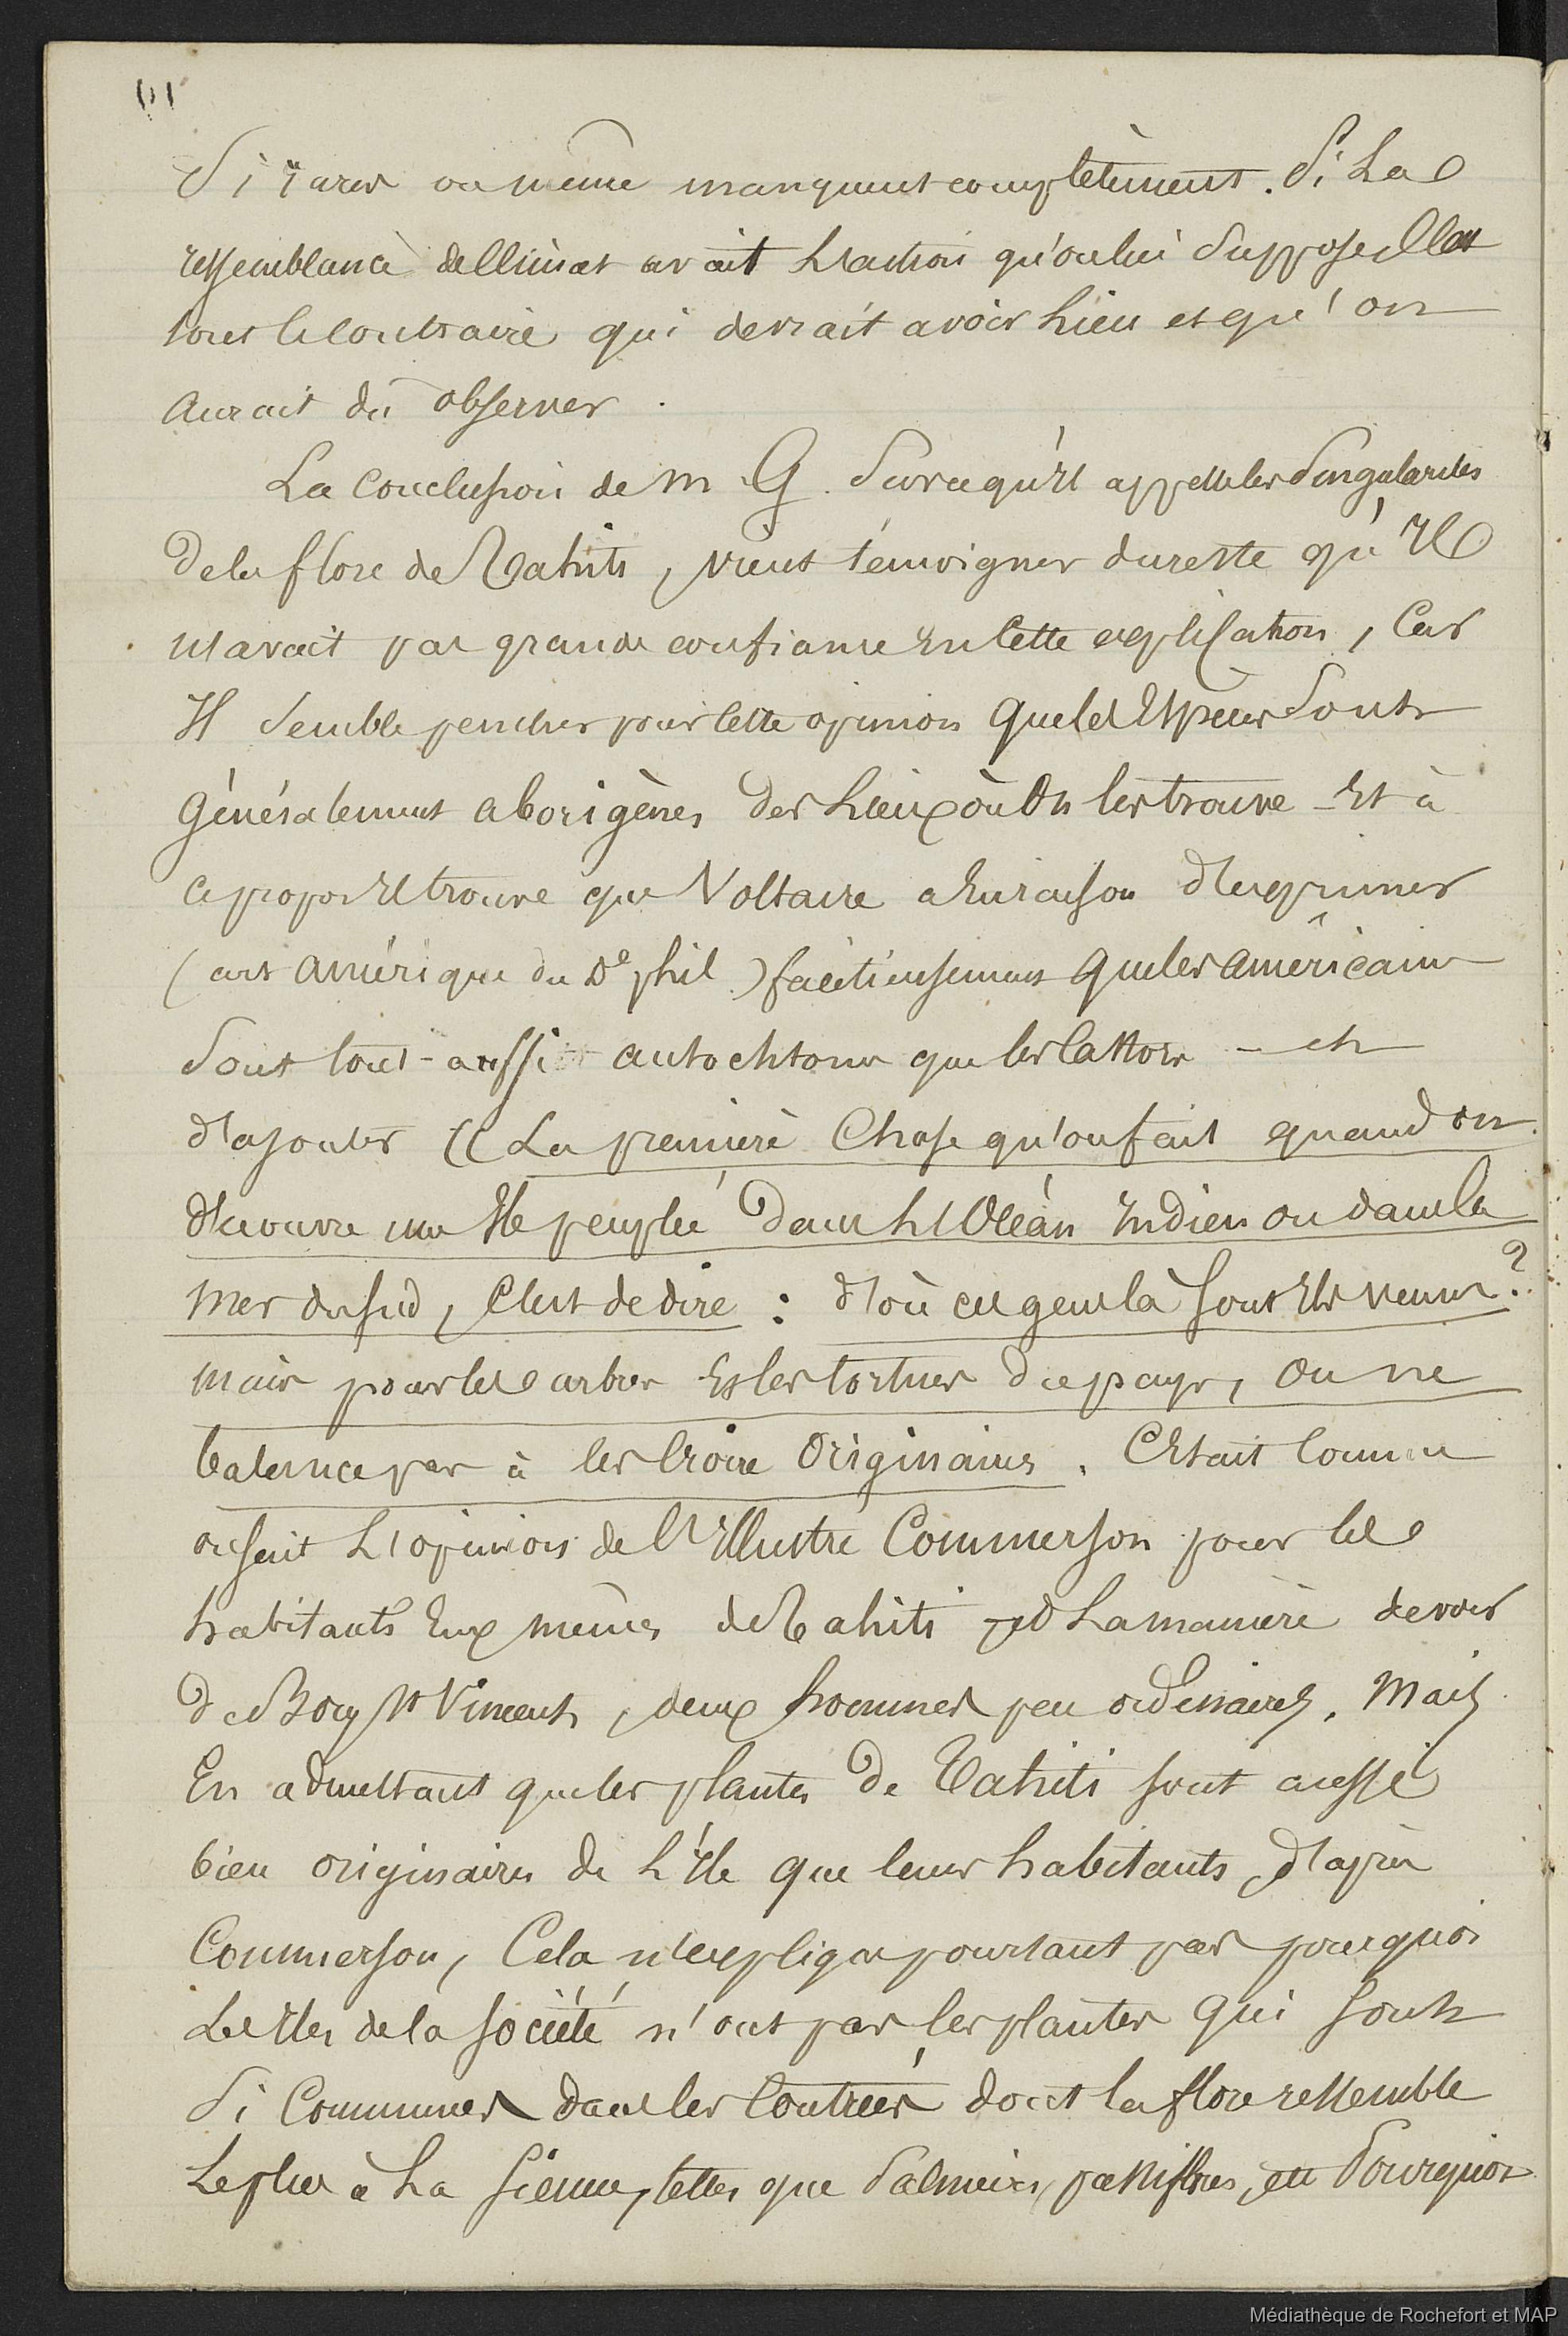 Si rares ou même manquent complètement. Si La
ressemblance de climat avait L'action qu'on lui suppose, C'est
tout le contraire qui devrait avoir Lieu et qu'on
aurait dû observer.
La Conclusion de M G. Sur ce qu'il appelle les Singularités
De la flore de Tahiti, vient témoigner du reste qu'Il
n'avait pas grande confiance En Cette explication, Car
Il Semble pencher pour Cette opinion Que les Espèces Sont
Généralement aborigènes des Lieux où On les trouve - Et à
ce propos Il trouve que Voltaire a Eu raison d'exprimer
(art Amérique du De phil.) facétieusement Que les américains
Sont tout-aussi autochtones que les Castors - et
d'ajouter (( La première Chose qu'on fait quand on
découvre une Ile peuplée Dans L'Océan Indien ou dans la
Mer du Sud, C'est de dire : d'où ces gens là Sont Ils venus?
Mais pour les arbres Et les tortues du pays, On ne
balance pas à les Croire Originaires. C'Etait Comme
on sait L'opinion de l'Illustre Commerson pour les
habitants Eux mêmes de Tahiti et La manière de voir
De Bory St Vincent, deux hommes peu ordinaires. Mais
En admettant que les plantes De Tahiti sont aussi
bien originaires de L'Ile Que leurs habitants, d'après
Commerson, Cela n'explique pourtant pas pourquoi
Les Iles de la Société n'ont pas les plantes Qui Sont
Si Communes dans les Contrées dont la flore ressemble
Le plus à La Sienne, telles que Palmiers, passiflores, etc Pourquoi
Médiathèque de Rochefort et MAP